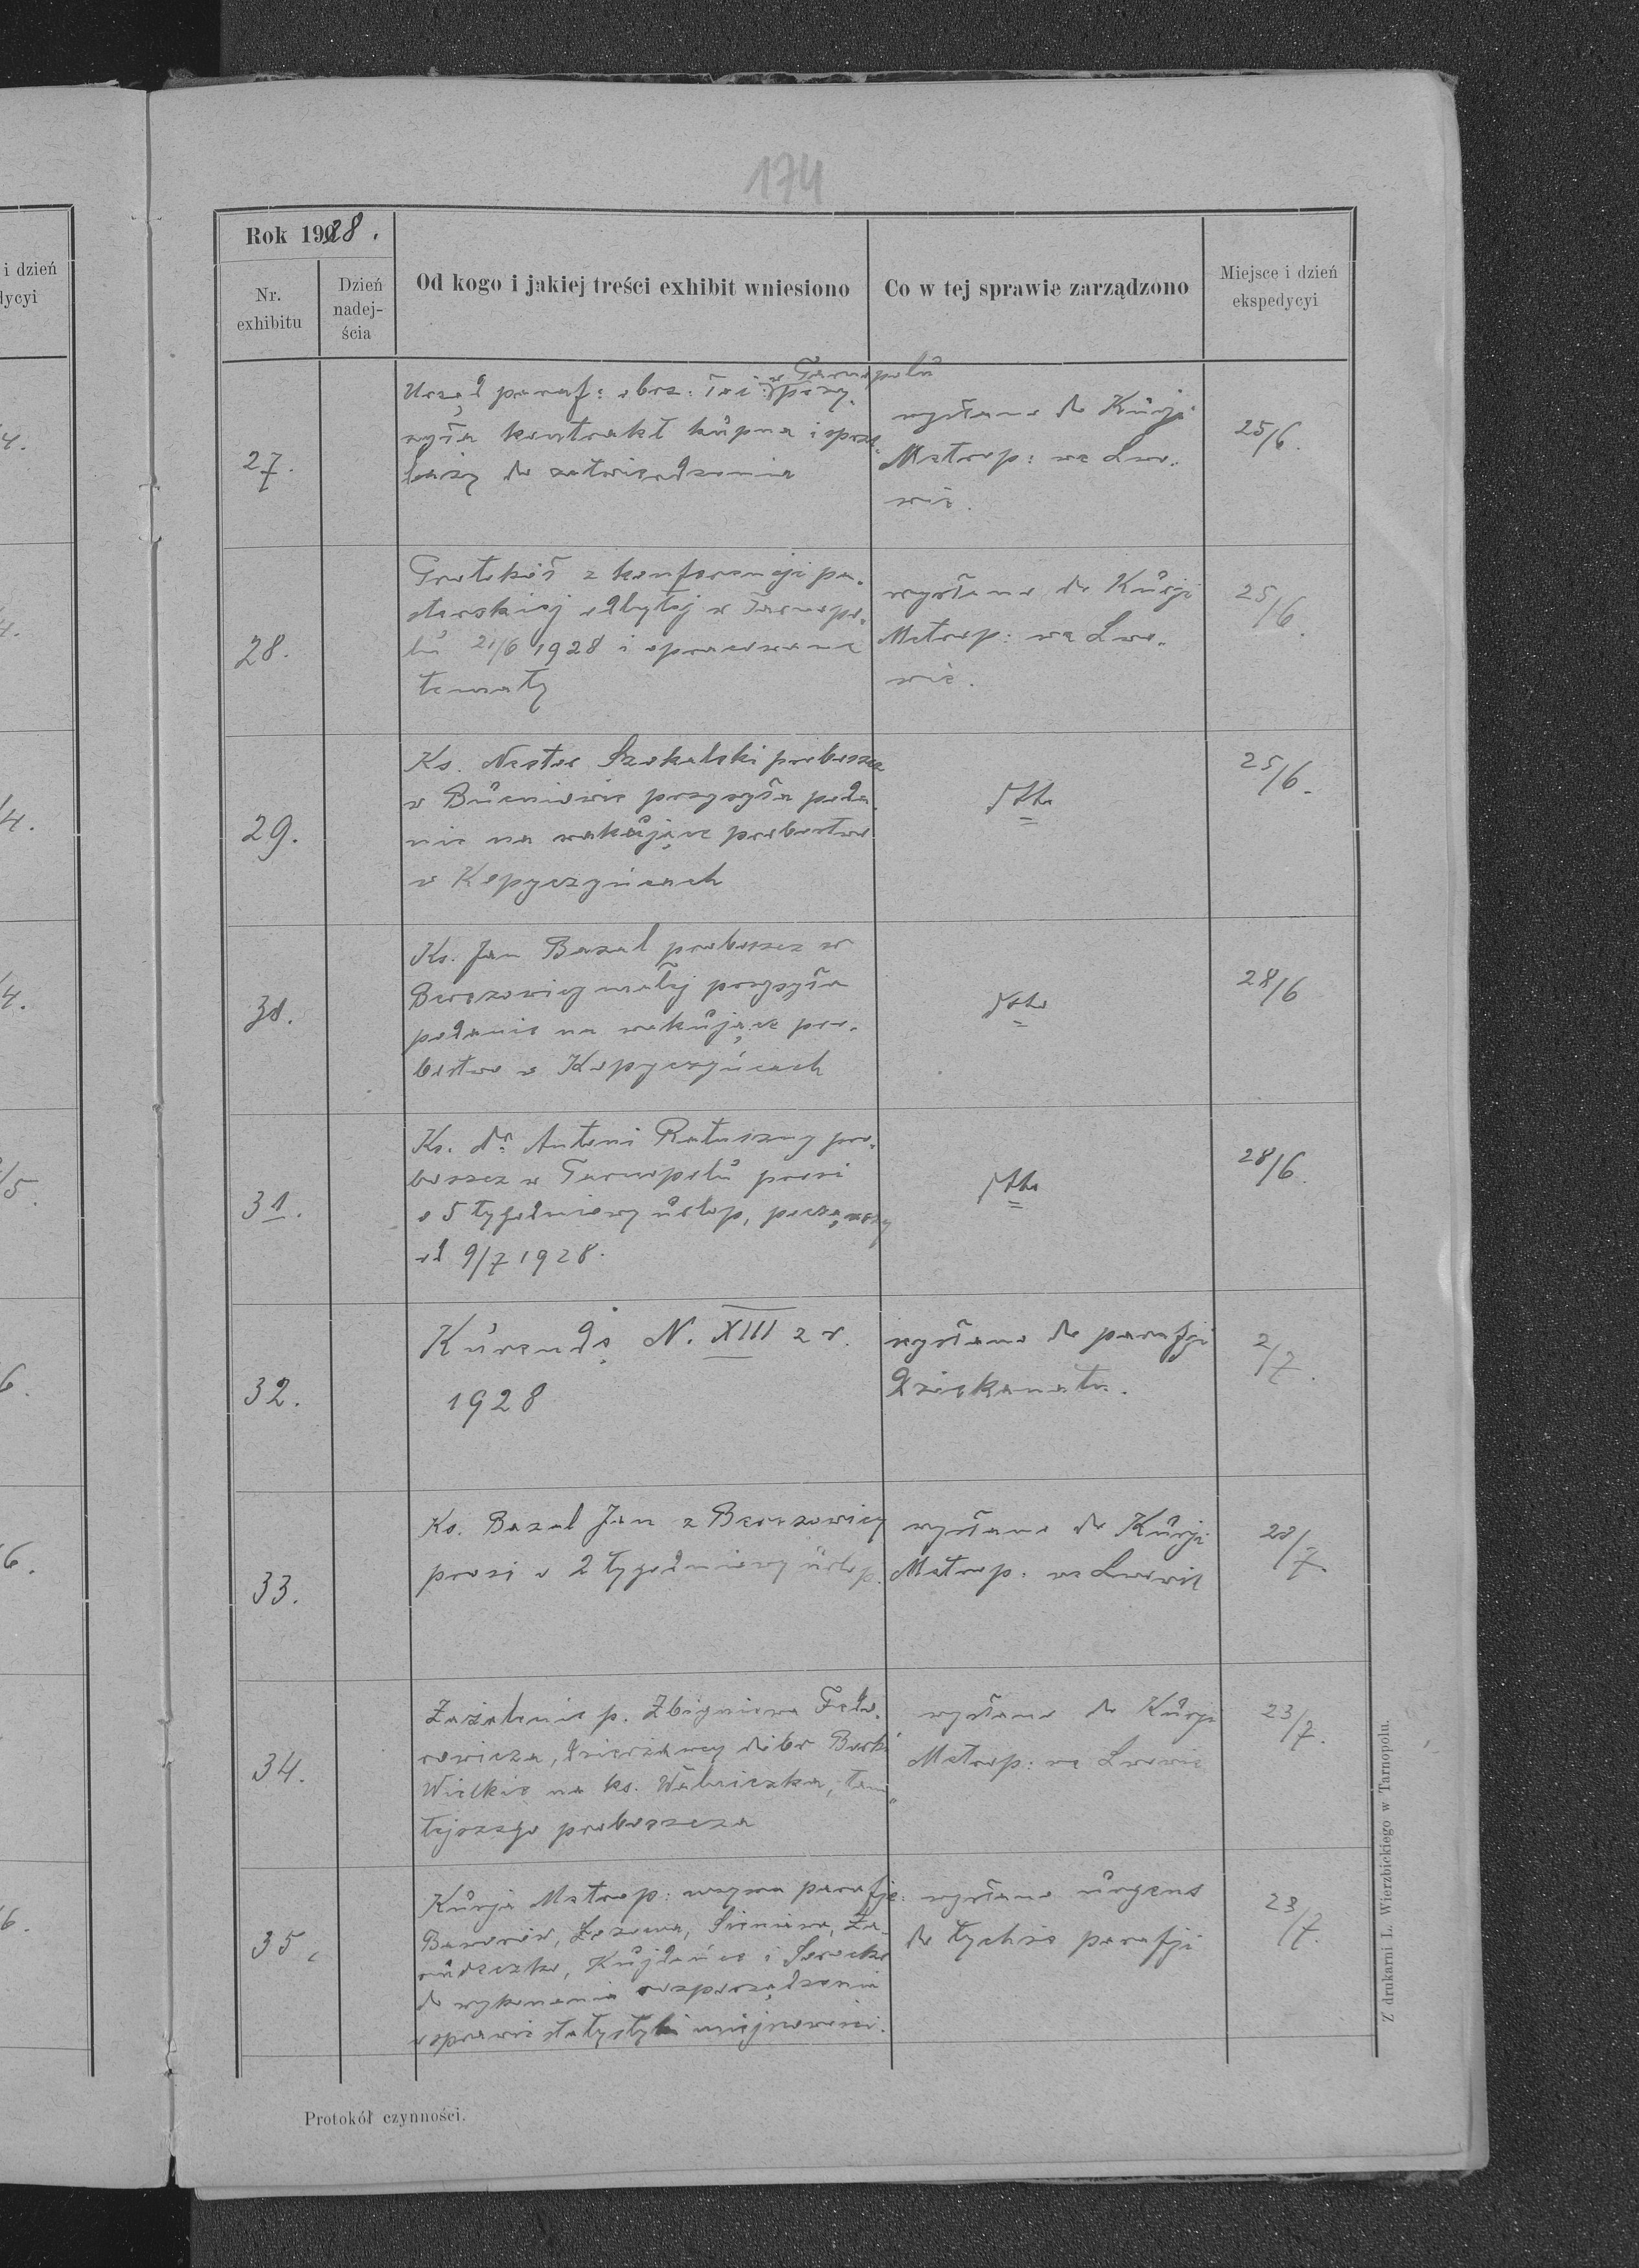 174
i dzień
dycyi
Rok 1928.
Nr.
exhibitu
Dzień
nadej-
ścia
Od kogo i jakiej treści exhibit wniesiono
Co w tej sprawie zarządzono
Miejsce i dzień
ekspedycyi
w Tarnopolu
27.
Urząd paraf: obrz: łac: przy-
syła kontrakt kupna i sprze-
daży do zatwierdzenia
wysłano do Kurji
Metrop: we Lwo-
wie.
25/6.
28.
Protokół z konferencji pa-
sterskiej odbytej w Tarnopo-
lu 21/6 1928 i opracowane
tematy
wysłano do Kurji
Metrop: we Lwo-
wie.
25/6.
29.
Ks. Nestor Szokalski proboszcz
w Bucniowie przysyła poda-
nie na wakujące probostwo
w Kopyczyńcach
dtto
25/6.
30.
Ks. Jan Bazal proboszcz w
Berezowicy małej przysyła
podanie na wakujące pro-
bostwo w Kopyczyńcach
dtto
28/6
31.
Ks. dr Antoni Ratuszny pro-
boszcz w Tarnopolu prosi
o 5 tygodniowy urlop, począwszy
od 9/7 1928.
dtto
28/6.
32.
Kurendę N. XIII z r.
1928
wysłano do parafji
dziekanatu.
2/7.
33.
Ks. Bazal Jan z Berezowicy
prosi o 2 tygodniowy urlop.
wysłano do Kurji
Metrop: we Lwowie
/7.
34.
Zażalenie p. Zbigniewa Fedo-
rowicza, dzierżawcy dóbr Borki
Wielkie na ks. Walniczka, tam-
tejszego proboszcza
wysłano do Kurji
Metrop: we Lwowie
23/7.
35.
Kurja Metrop: wzywa parafje:
Baworów, Łozowa, Sieniawa, Za-
rudeczko, Kujdańce i Sorocko
do wykonania rozporządzenia
w sprawie statystyki
wysłano urgens
do tychże parafji
23/7.
Protokół czynności.
Z drukarni L. Wierzbickiego w Tarnopolu.